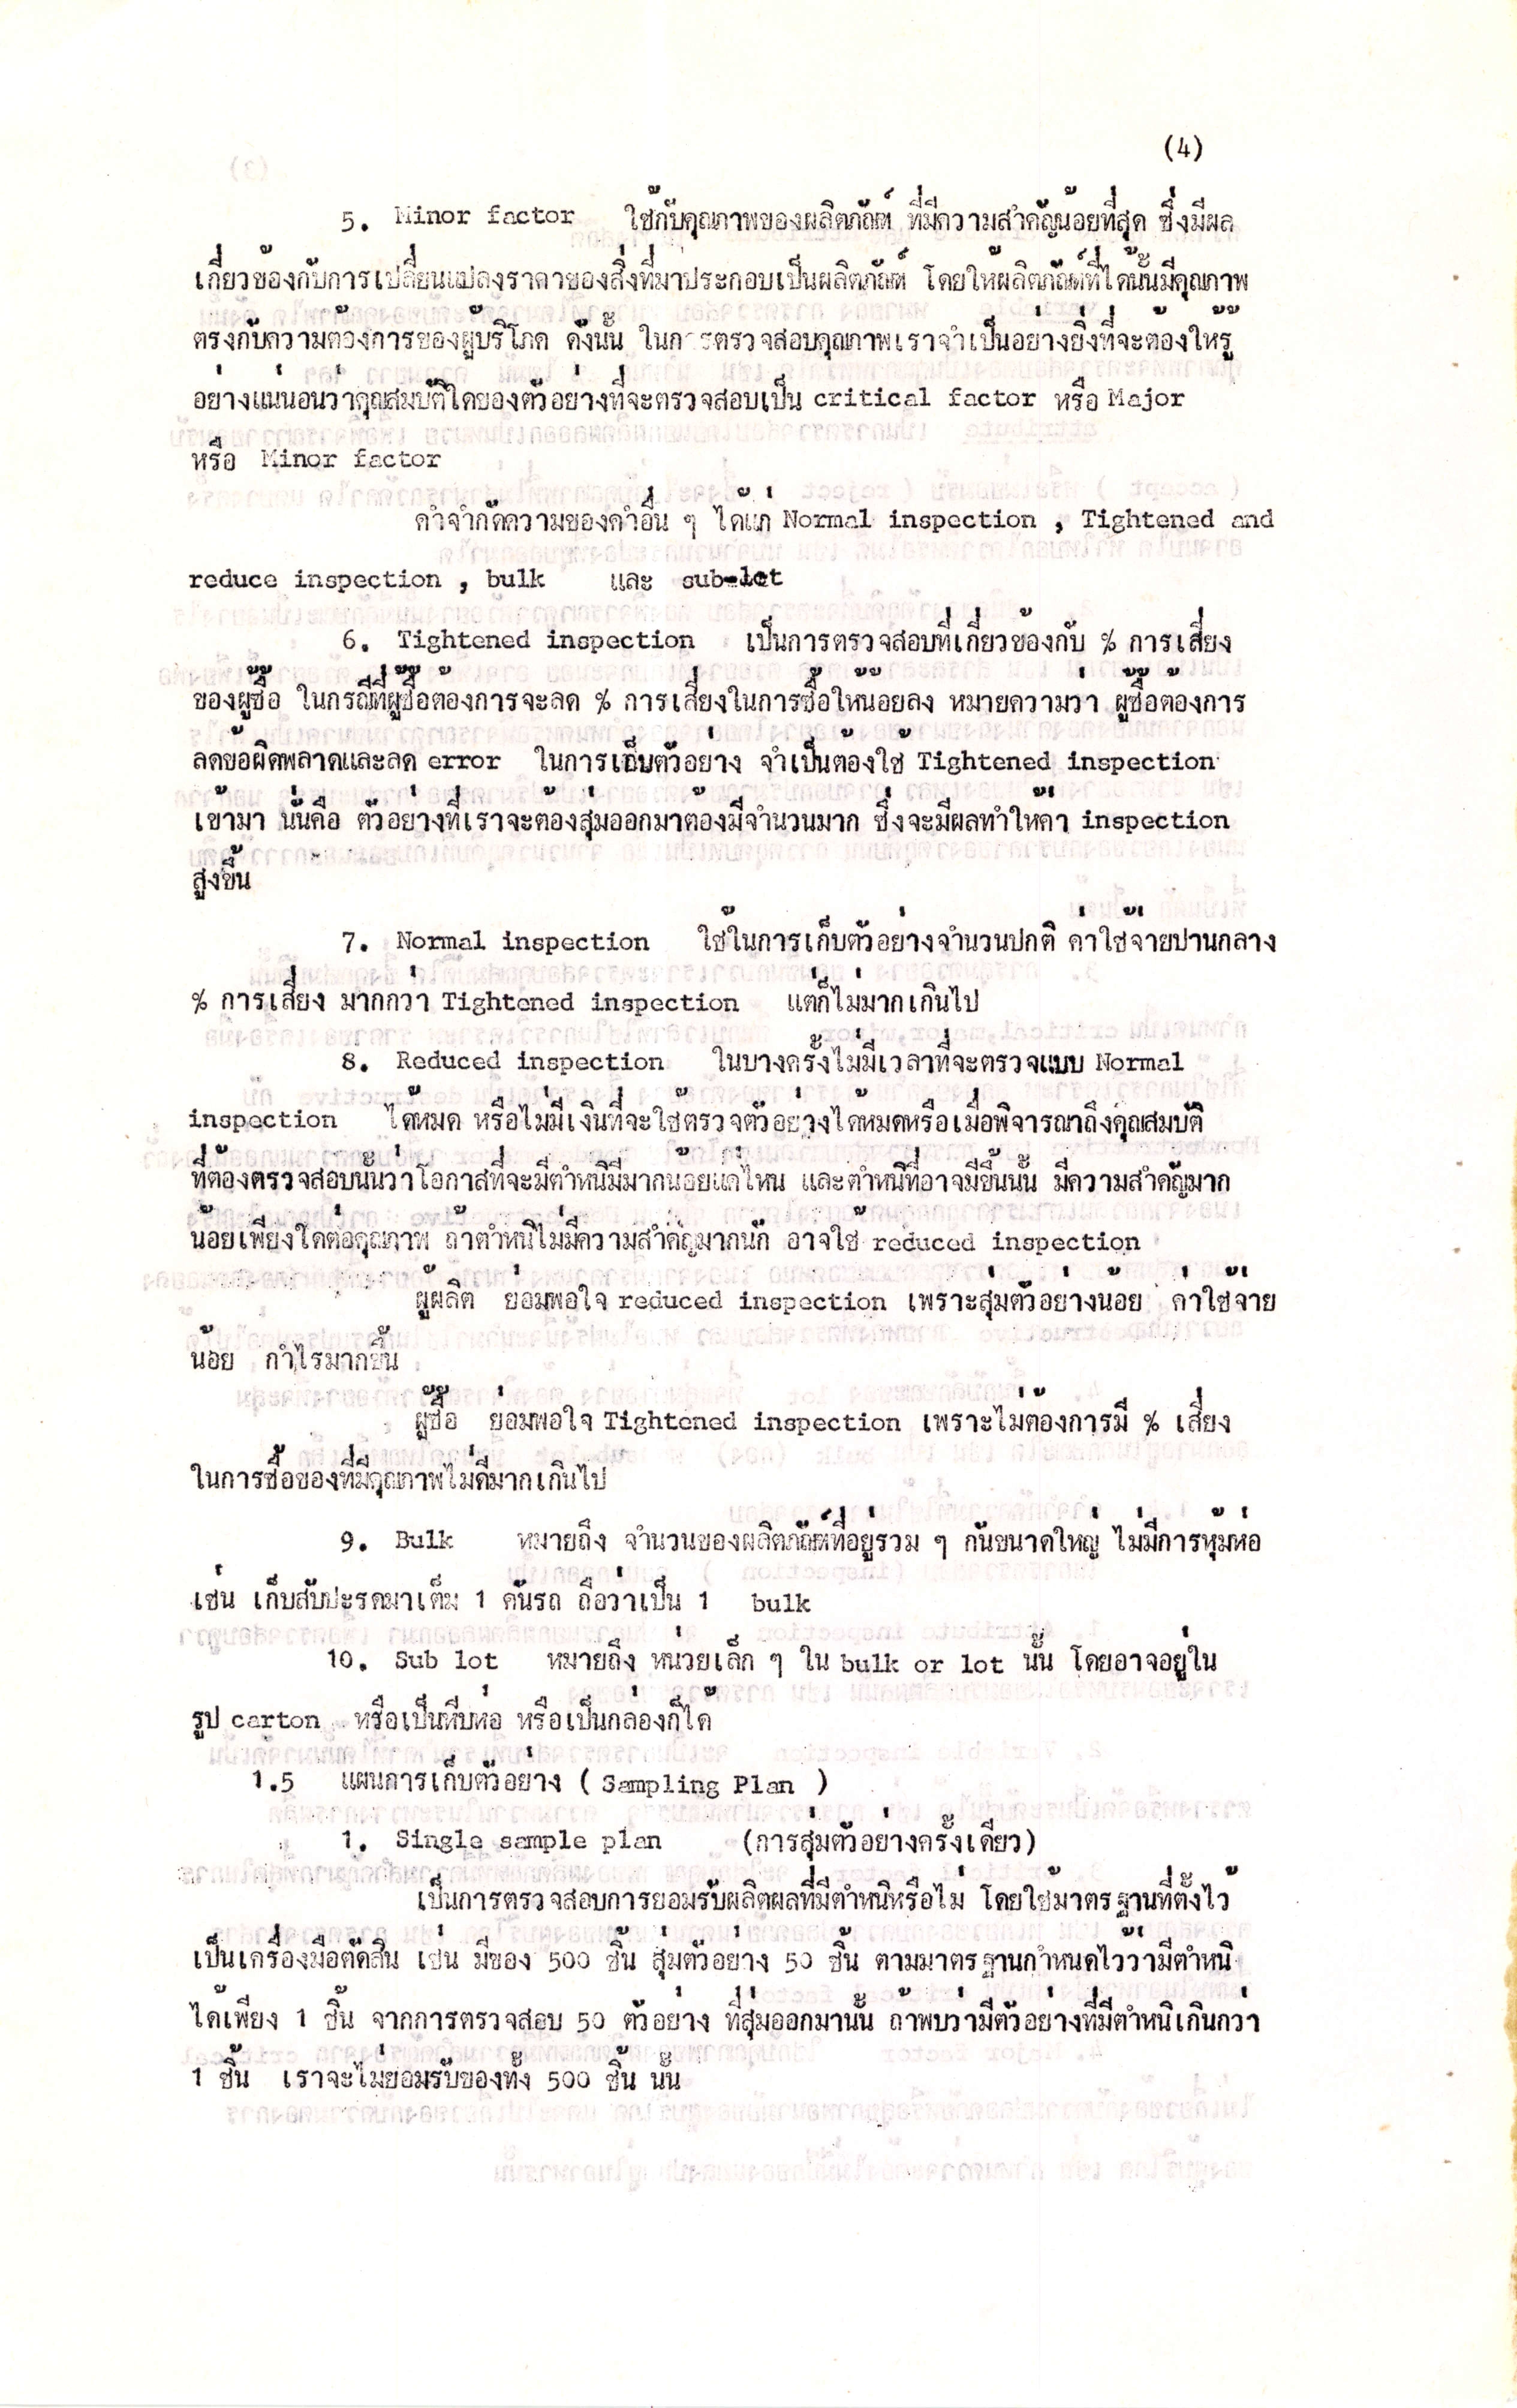 (4)
5. Minor factor ใช้กับคุณภาพของผลิตภัณฑ์ ที่มีความสำคัญน้อยที่สุด ซึ่งมีผล
เกี่ยวข้องกับการเปลี่ยนแปลงราคาของสิ่งที่มาประกอบเป็นผลิตภัณฑ์ โดยให้ผลิตภัณฑ์ที่ได้นั้นมีคุณภาพ
ตรงกับความต้องการของผู้บริโภค ดังนั้น ในการตรวจสอบคุณภาพเราจำเป็นอย่างยิ่งที่จะต้องให้รู้
อย่างแน่นอนว่าคุณสมบัติใดของตัวอย่างที่จะตรวจสอบเป็น critical factor หรือ Major
หรือ Minor factor
คำจำกัดความของคำอื่น ๆ ได้แก่ Normal inspection , Tightened and
reduce inspection , bulk และ sub-lot
6. Tightened inspection เป็นการตรวจสอบที่เกี่ยวข้องกับ % การเสี่ยง
ของผู้ซื้อ ในกรณีที่ผู้ซื้อต้องการจะลด % การเสี่ยงในการซื้อให้น้อยลง หมายความว่า ผู้ซื้อต้องการ
ลดข้อผิดพลาดและลด error ในการเก็บตัวอย่าง จำเป็นต้องใช้ Tightened inspection
เข้ามา นั่นคือ ตัวอย่างที่เราจะต้องสุ่มออกมาต้องมีจำนวนมาก ซึ่งจะมีผลทำให้ค่า inspection
สูงขึ้น
7. Normal inspection ใช้ในการเก็บตัวอย่างจำนวนปกติ ค่าใช้จ่ายปานกลาง
% การเสี่ยง มากกว่า Tightened inspection แต่ก็ไม่มากเกินไป
8. Reduced inspection ในบางครั้งไม่มีเวลาที่จะตรวจแบบ Normal
inspection ได้หมด หรือไม่มีเงินที่จะใช้ตรวจตัวอย่างได้หมดหรือเมื่อพิจารณาถึงคุณสมบัติ
ที่ต้องตรวจสอบนั้นว่าโอกาสที่จะมีตำหนิมีมากน้อยแค่ไหน และตำหนิที่อาจมีขึ้นนั้น มีความสำคัญมาก
น้อยเพียงใดต่อคุณภาพ ถ้าตำหนิไม่มีความสำคัญมากนัก อาจใช้ reduced inspection
ผู้ผลิต ย่อมพอใจ reduced inspection เพราะสุ่มตัวอย่างน้อย ค่าใช้จ่าย
น้อย กำไรมากขึ้น
ผู้ซื้อ ย่อมพอใจ Tightened inspection เพราะไม่ต้องการมี % เสี่ยง
ในการซื้อของที่มีคุณภาพไม่ดีมากเกินไป
9. Bulk หมายถึง จำนวนของผลิตภัณฑ์ที่อยู่รวม ๆ กันขนาดใหญ่ ไม่มีการหุ้มห่อ
เช่น เก็บสับปะรดมาเต็ม 1 คันรถ ถือว่าเป็น 1 bulk
10. Sub lot หมายถึง หน่วยเล็ก ๆ ใน bulk or lot นั้น โดยอาจอยู่ใน
รูป carton หรือเป็นหีบห่อ หรือเป็นกล่องก็ได้
1.5 แผนการเก็บตัวอย่าง ( Sampling Plan )
1. Single sample plan (การสุ่มตัวอย่างครั้งเดียว)
เป็นการตรวจสอบการยอมรับผลิตผลที่มีตำหนิหรือไม่ โดยใช้มาตรฐานที่ตั้งไว้
เป็นเครื่องมือตัดสิน เช่น มีของ 500 ชิ้น สุ่มตัวอย่าง 50 ชิ้น ตามมาตรฐานกำหนดไว้ว่ามีตำหนิ
ได้เพียง 1 ชิ้น จากการตรวจสอบ 50 ตัวอย่าง ที่สุ่มออกมานั้น ถ้าพบว่ามีตัวอย่างที่มีตำหนิเกินกว่า
1 ชิ้น เราจะไม่ยอมรับของทั้ง 500 ชิ้น นั้น